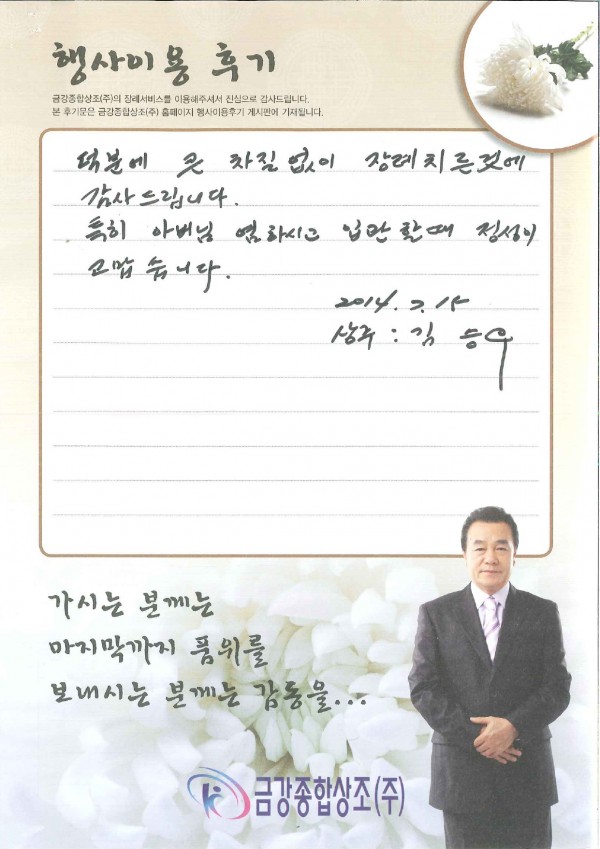 행사이용 후기
금강종합상조(주)의 장례서비스를 이용해주셔서 진심으로 감사드립니다.
본 후기문은 금강종합상조(주) 홈페이지 행사이용후기 게시판에 기재됩니다.
덕분에 큰 차질없이 장례치른것에
감사드립니다.
특히 아버님 염하시고 입관할때 정성이
고맙습니다.
2014. 7. 15
상주 : 김승우
가시는 분께는
마지막까지 품위를
보내시는 분께는 감동을...
금강종합상조(주)